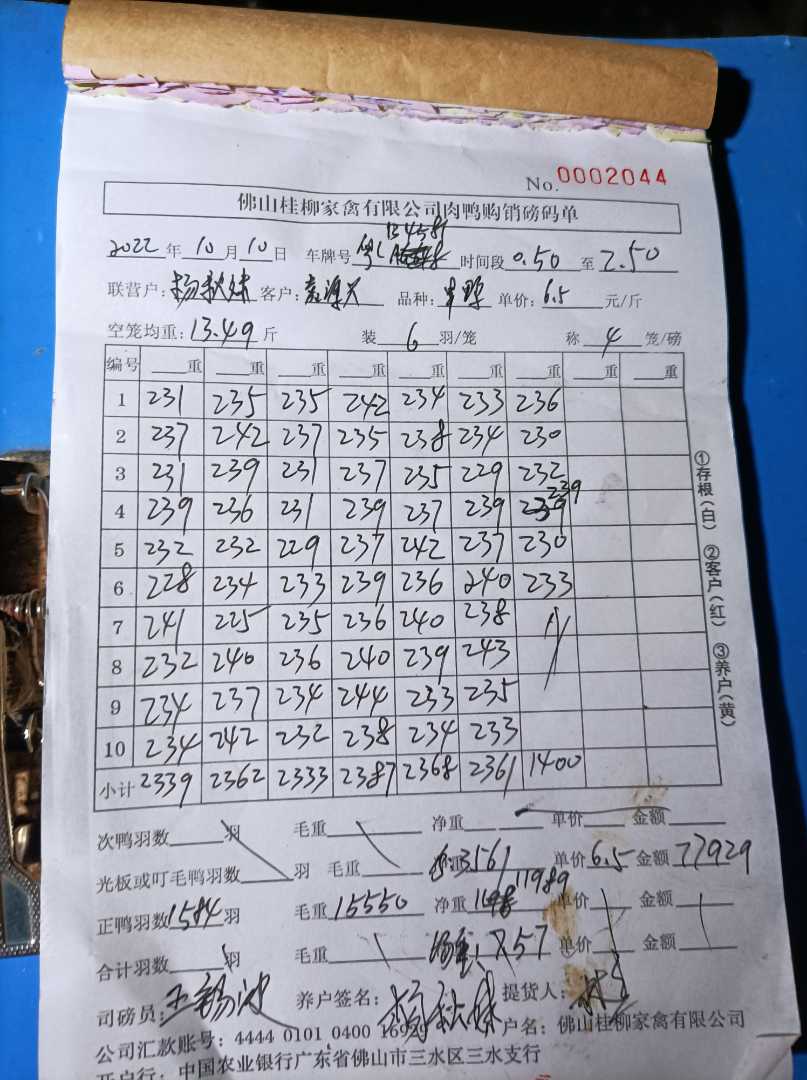 No. 0002044
佛山桂柳家禽有限公司肉鸭购销磅码单
2022 年 10 月 10 日 车牌号 粤 时间段 0.50 至 2.50
联营户: 杨秋妹 客户: 品种: 单价: 6.5 元/斤
空笼均重: 13.49 斤 装 6 羽/笼 称 4 笼/磅
编号 重 重 重 重 重 重 重 重 重
1 231 235 235 242 234 233 236
2 237 242 237 235 238 234 230
3 231 239 231 237 235 229 232
4 239 236 231 239 237 239 239
5 232 232 229 237 242 237 230
6 228 234 233 239 236 240 233
7 241 225 235 236 240 238
8 232 240 236 240 239 243
9 234 237 234 244 233 235
10 234 242 232 238 234 233
小计 2339 2362 2333 2387 2368 2361 1400
①存根(白) ②客户(红) ③养户(黄)
次鸭羽数 羽 毛重 净重 单价 金额
光板或叮毛鸭羽数 羽 毛重 3561 单价 6.5 金额 77929
正鸭羽数 1584 羽 毛重 15550 净重 11989 单价 金额
合计羽数 羽 毛重 7.57 单价 金额
司磅员: 王锡冰 养户签名: 杨秋妹 提货人:
公司汇款账号: 4444 0101 0400 16929 户名: 佛山桂柳家禽有限公司
开户行: 中国农业银行广东省佛山市三水区三水支行